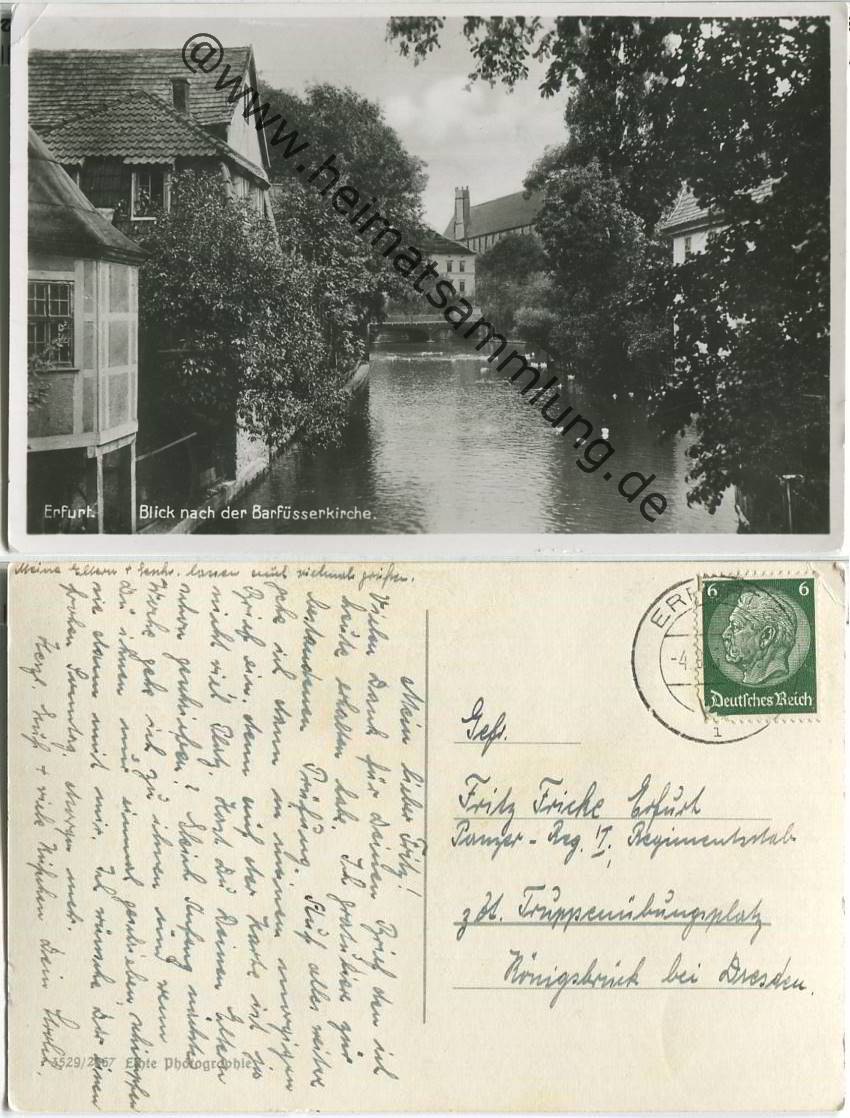 @www.heimatsammlung.de
Erfurt. Blick nach der Barfüsserkirche.
Meine Eltern + lassen auch vielmals grüßen.
Mein lieber Fritz!
Vielen Dank für Deinen Brief den ich
heute erhalten hab. Ich gratuliere zur
bestandenen Prüfung. Auf alles weitere
gehe ich dann in meinem morgigen
Brief ein, denn auf der Karte ist ja
nicht viel Platz. Hast Du Deinen Eltern
schon geschrieben? Gleich Anfang nächster
Woche geh ich zu ihnen und wenn
Du ihnen nur einmal geschrieben, schimpfen
sie dann mit mir. Ich wünsche Dir einen
frohen Sonntag. Morgen mehr.
Herzl. Gruß + viele Küßchen Dein
3529/2967 Echte Photographie
6 6
Deutsches Reich
-4.
1
Gefr.
Fritz Fricke Erfurt
Panzer-Reg. I, Regimentsstab
z.Zt. Truppenübungsplatz
Königsbrück bei Dresden.